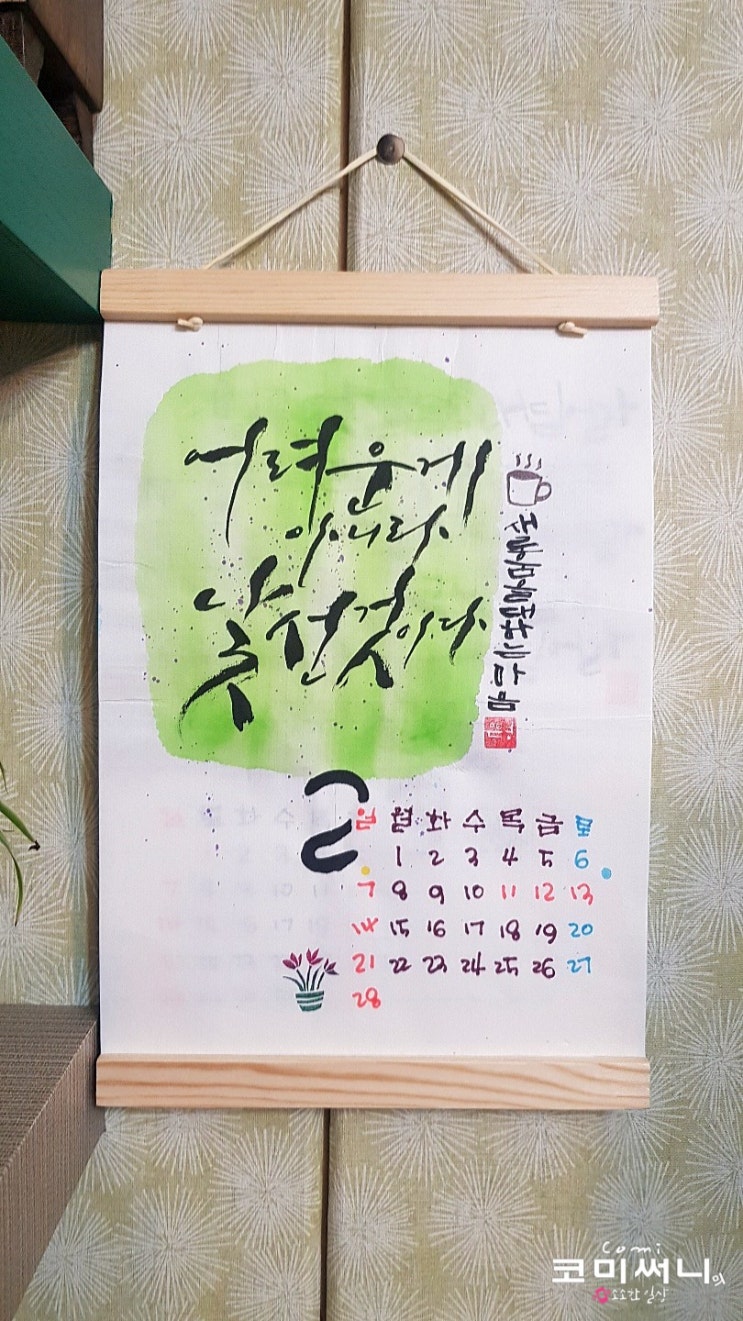 어려운게
아니라
낯선것이다
새로움을대하는마음
2
일 월 화 수 목 금 토
1 2 3 4 5 6
7 8 9 10 11 12 13
14 15 16 17 18 19 20
21 22 23 24 25 26 27
28
comi
코미써니의
소소한 일상